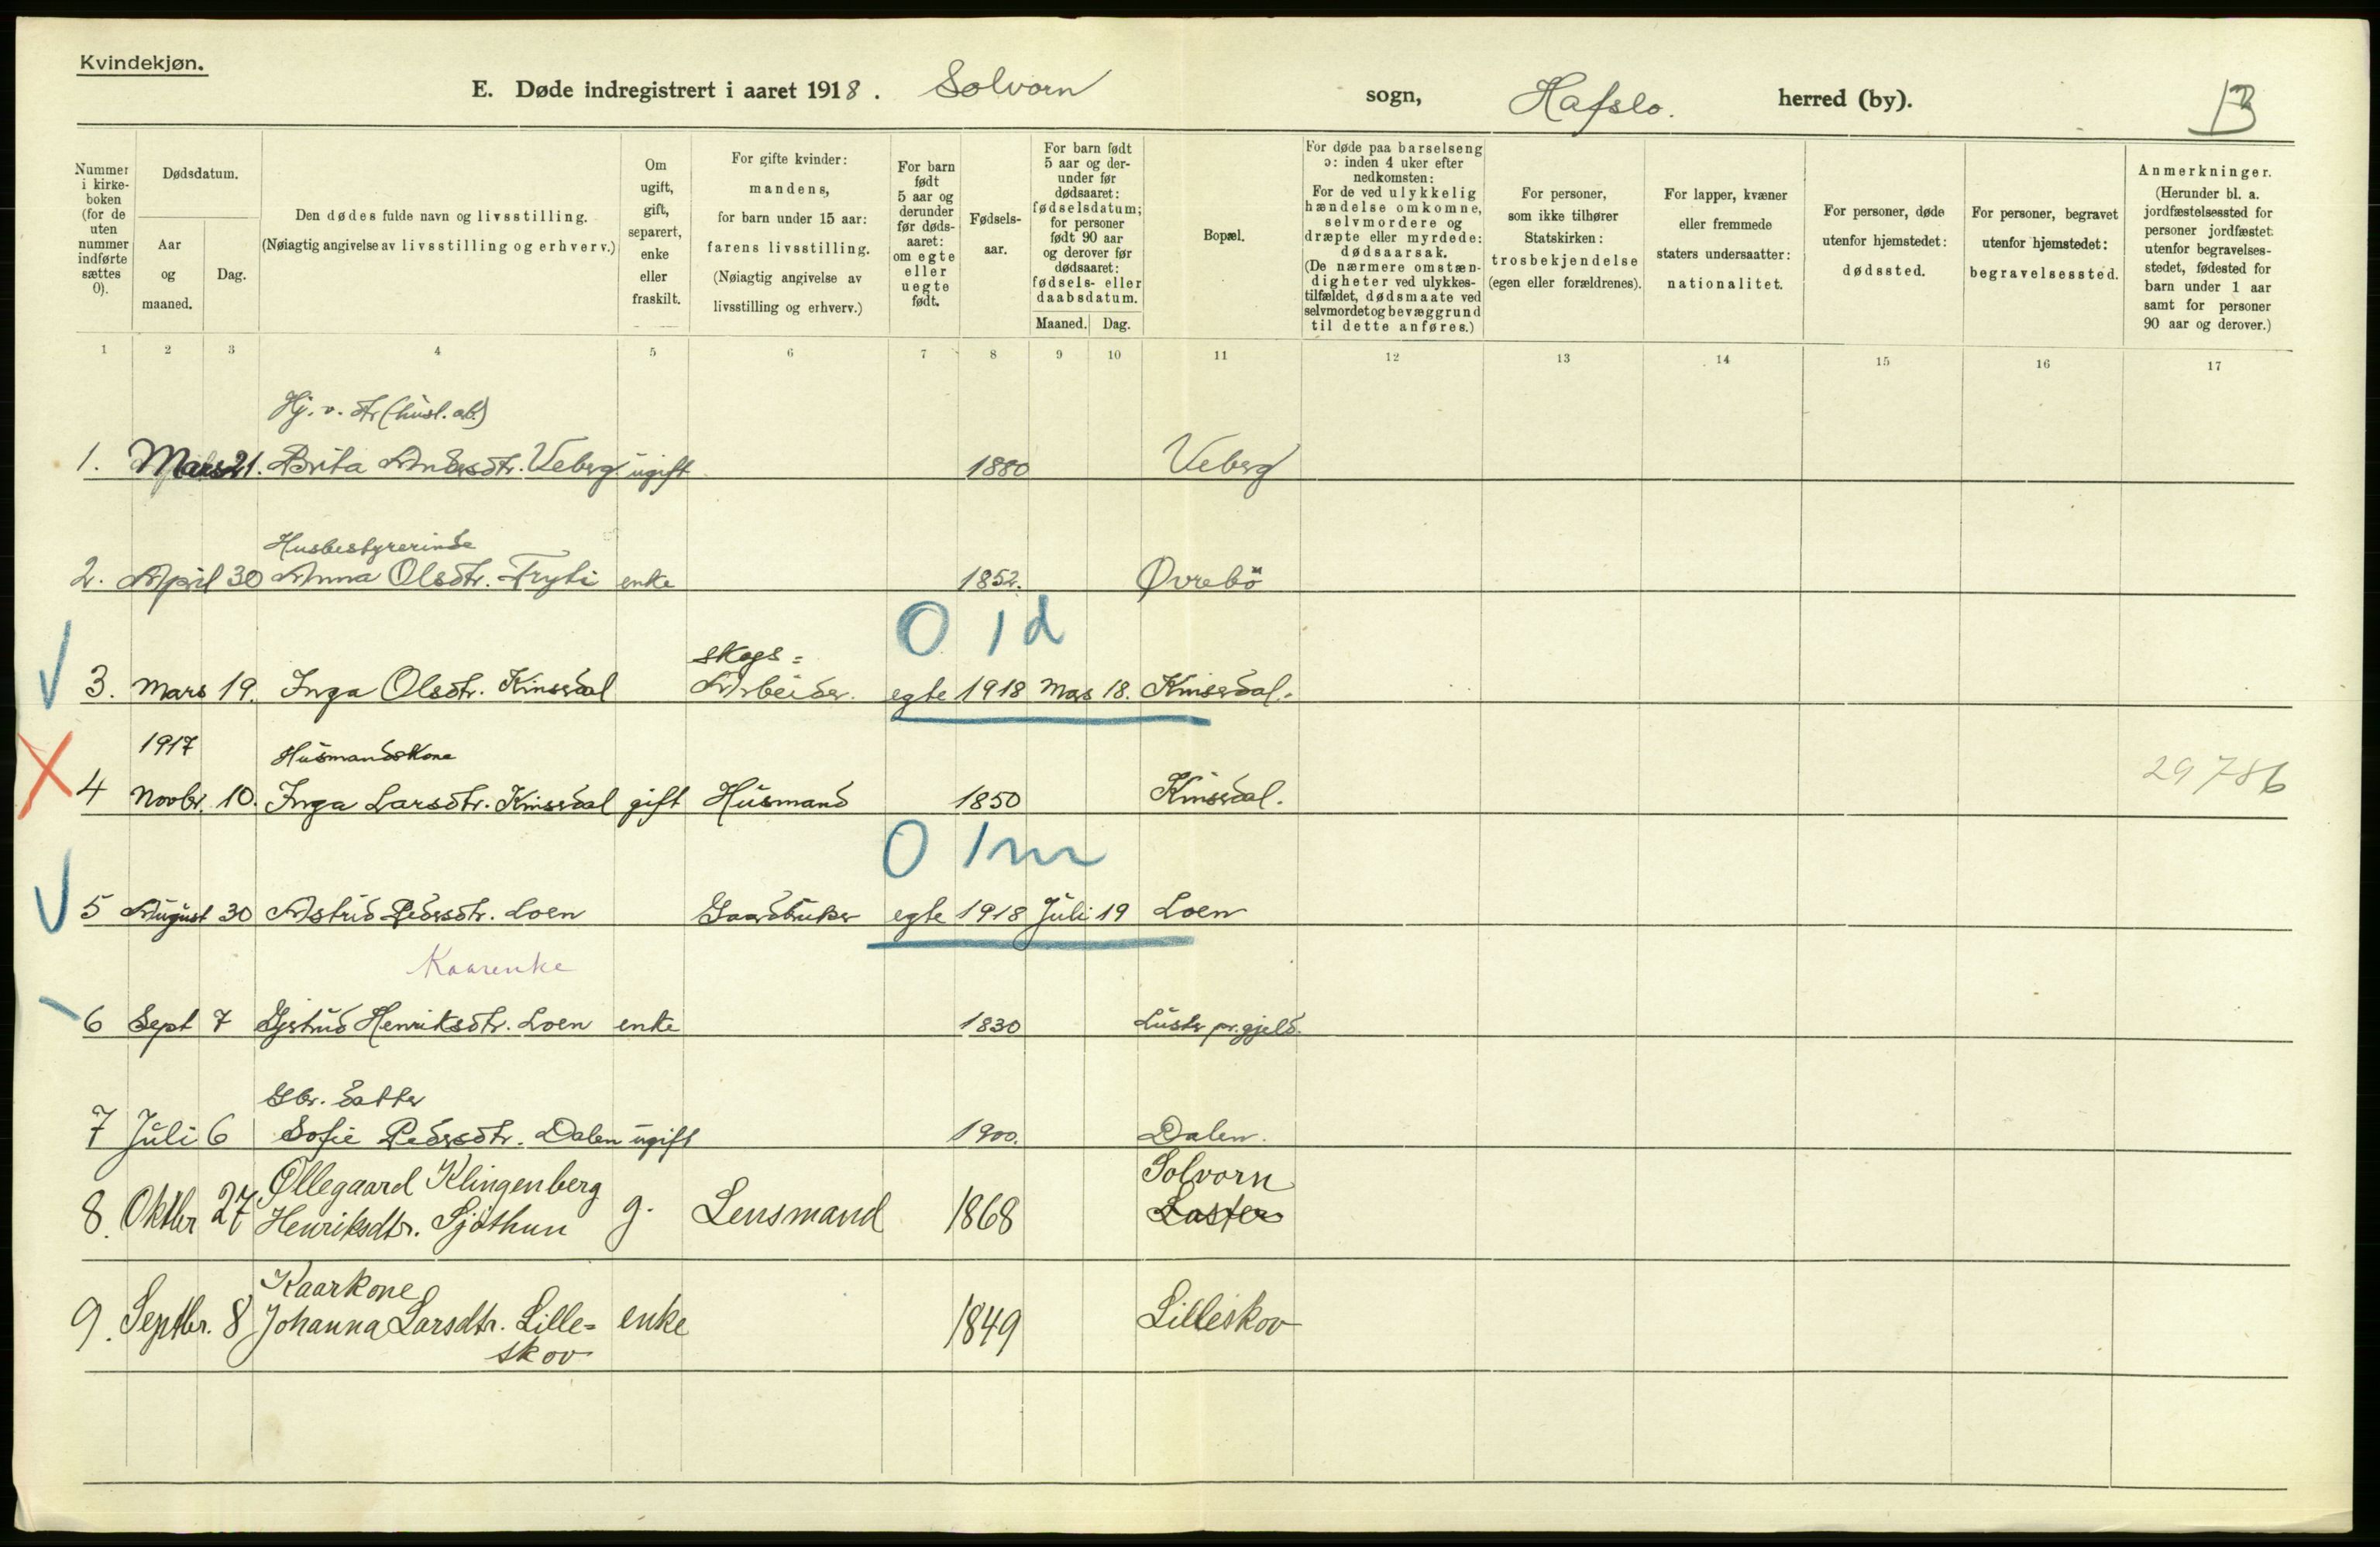 Kvindekjøn.
E. Døde indregistrert i aaret 1918. Solvorn sogn, Hafslo. herred (by). 13
Nummer i kirkeboken (for de uten nummer indførte sættes 0).
Dødsdatum.
Aar og maaned.
Dag.
Den dødes fulde navn og livsstilling.
(Nøiagtig angivelse av livsstilling og erhverv.)
Om ugift, gift, separert, enke eller fraskilt.
For gifte kvinder: mandens, for barn under 15 aar: farens livsstilling. (Nøiagtig angivelse av livsstilling og erhverv.)
For barn født 5 aar og derunder før dødsaaret: om egte eller uegte født.
Fødselsaar.
For barn født 5 aar og derunder før dødsaaret: fødselsdatum; for personer født 90 aar og derover før dødsaaret: fødsels- eller daabsdatum.
Maaned. Dag.
Bopæl.
For døde paa barselseng ɔ: inden 4 uker efter nedkomsten: For de ved ulykkelig hændelse omkomne, selvmordere og dræpte eller myrdede: dødsaarsak. (De nærmere omstændigheter ved ulykkestilfældet, dødsmaate ved selvmordet og bevæggrund til dette anføres.)
For personer, som ikke tilhører Statskirken: trosbekjendelse (egen eller forældrenes).
For lapper, kvæner eller fremmede staters undersaatter: nationalitet.
For personer, døde utenfor hjemstedet: dødssted.
For personer, begravet utenfor hjemstedet: begravelsessted.
Anmerkninger. (Herunder bl. a. jordfæstelsessted for personer jordfæstet utenfor begravelsesstedet, fødested for barn under 1 aar samt for personer 90 aar og derover.)
1 2 3 4 5 6 7 8 9 10 11 12 13 14 15 16 17
Hj. v. Fr (husl. arb.)
1. Mars 21. Brita Andersdtr. Veberg ugift 1880 Veberg
Husbestyrerinde
2. April 30 Anna Olsdtr. Fryti enke 1852. Øvrebö
0 1 d
Skogs=
3. Mars 19. Inga Olsdtr. Kinserdal Arbeider. egte 1918 Mars 18. Kinserdal.
1917 Husmandskone
4 Novbr. 10. Inga Larsdtr. Kinserdal gift Husmand 1850 Kinserdal. 29786
0 1 m
5 August 30 Astrid Pedersdtr. Loen Gaardbruker egte 1918 Juli 19 Loen
Kaarenke
6 Sept 7 Gjertrud Henriksdtr. Loen enke 1830 Luster pr.gjeld.
Gbr. datter
7 Juli 6 Sofie Pedersdtr. Dalen ugift 1900. Dalen.
Øllegaard Klingenberg Solvorn
8. Oktbr 27 Henriksdtr. Sjöthun g. Lensmand 1868 Luster
Kaarkone
9. Septbr. 8 Johanna Larsdtr. Lille= enke 1849 Lilleskov
skov